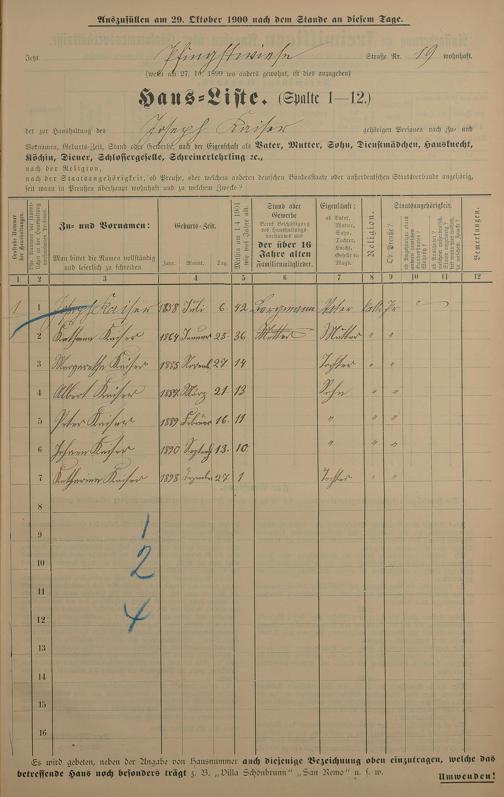 Auszufüllen am 29. Oktober 1900 nach dem Stande an diesem Tage.
Jetzt Pfingstwiese Straße Nr. 19 wohnhaft.
(wenn am 27. 10. 1899 wo anders gewohnt, ist dies anzugeben)
Haus-Liste. (Spalte 1—12.)
der zur Haushaltung des Joseph Kaiser gehörigen Personen nach Zu- und
Vornamen, Geburts-Zeit, Stand oder Gewerbe, nach der Eigenschaft als Vater, Mutter, Sohn, Dienstmädchen, Hausknecht,
Köchin, Diener, Schlossergeselle, Schreinerlehrling ec.,
nach der Religion,
nach der Staatsangehörigkeit, ob Preuße, oder welchem anderen deutschen Bundesstaate oder außerdeutschen Staatsverbande angehörig,
seit wann in Preußen überhaupt wohnhaft und zu welchem Zwecke?
Zu- und Vornamen:
Man bittet die Namen vollständig und leserlich zu schreiben.
Geburts-Zeit.
Jahr. Monat. Tag.
Stand oder Gewerbe
der über 16 Jahre alten Familienmitglieder.
Eigenschaft:
ob Vater, Mutter, Sohn, Tochter,
Religion.
Staatsangehörigkeit.
Ob Preuße?
Bemerkungen.
1 2 3 4 5 6 7 8 9 10 11 12
1 1 Joseph Kaiser 1858 Juli 6 42 Bergmann Vater kath Pr
2 Kaiser 1864 Januar 23 36 Mutter Mutter " "
3 Margarethe Kaiser 1885 Novemb 27 14 Tochter " "
4 Albert Kaiser 1887 März 21 13 Sohn " "
5 Peter Kaiser 1889 Februar 16 11 " " "
6 Johann Kaiser 1890 Septemb 13 10 " " "
7 Katharina Kaiser 1898 Dezember 27 1 Tochter " "
8
9
10
11
12
13
14
15
16
1
2
4
Es wird gebeten, neben der Angabe von Hausnummer auch diejenige Bezeichnung oben einzutragen, welche das
betreffende Haus noch besonders trägt z. B. „Villa Schönbrunn" „San Remo" u. s. w.
Umwenden!